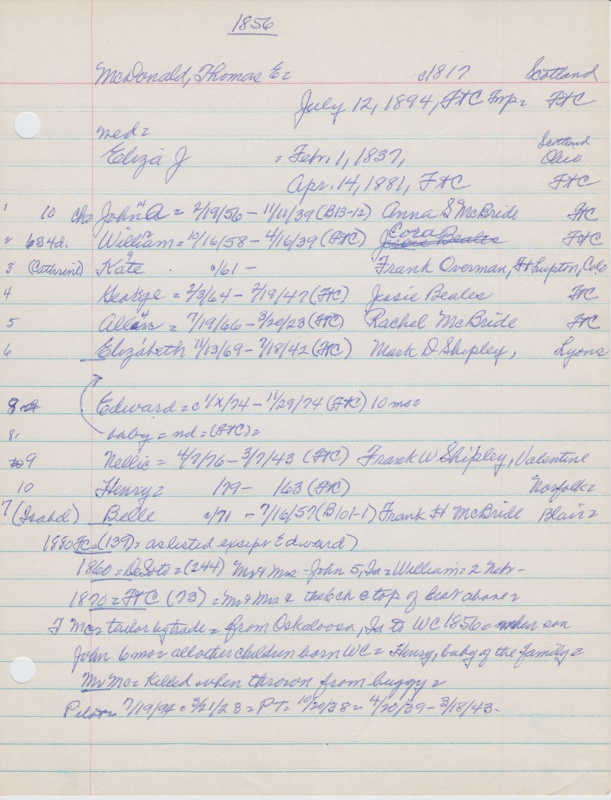 1856
McDonald, Thomas E= c1817 Scotland
July 12, 1894, FtC Imp= FtC
med=
Eliza J = Feb. 1, 1837, Scotland Ohio
Apr. 14, 1881, FtC FtC
1 10 cha John H A = 2/19/56 - 11/11/39 (B13-12) Anna S McBride FC
2 684d. William = 10/16/58 - 4/16/39 (FtC) Cora Jessie Beales FtC
3 (Cathrine) Kate . c/61 - Frank Overman, Ft Lupton, Colo
4 George = 2/3/64 - 2/19/47 (FtC) Jessie Beales FC
5 Allan = 7/19/66 - 3/20/23 (FtC) Rachel McBride FC
6 Elizabeth 11/13/69 - 7/18/42 (FtC) Mark D Shipley, Lyons
8 Edward = c 1/x/74 - 11/29/74 (FtC) 10 mo=
8, baby = nd = (FtC) =
9 Nellie = 4/7/76 - 3/7/43 (FtC) Frank W Shipley, Valentine
10 Henry = /79 - /63 (FtC) Norfolk=
7 (Isabel) Belle c/71 - 7/16/57 (B101-1) Frank H McBride Blair=
1880 FC d (139) = as listed except Edward)
1860 = DeSoto = (244) Mr & Mrs - John 5, Ia = William = 2 Neb -
1870 = FtC (73) = Mr & Mrs & the 6 ch @ top of list above =
Mc = tailor by trade = from Oskaloosa, Ia to WC 1856 when son
John 6 mo = all other children born WC = Henry, baby of the family =
Mr Mc = killed when thrown from buggy =
Pilot = 7/19/94 = 3/21/23 = PT = 10/20/38 = 4/20/39 - 3/18/43 -